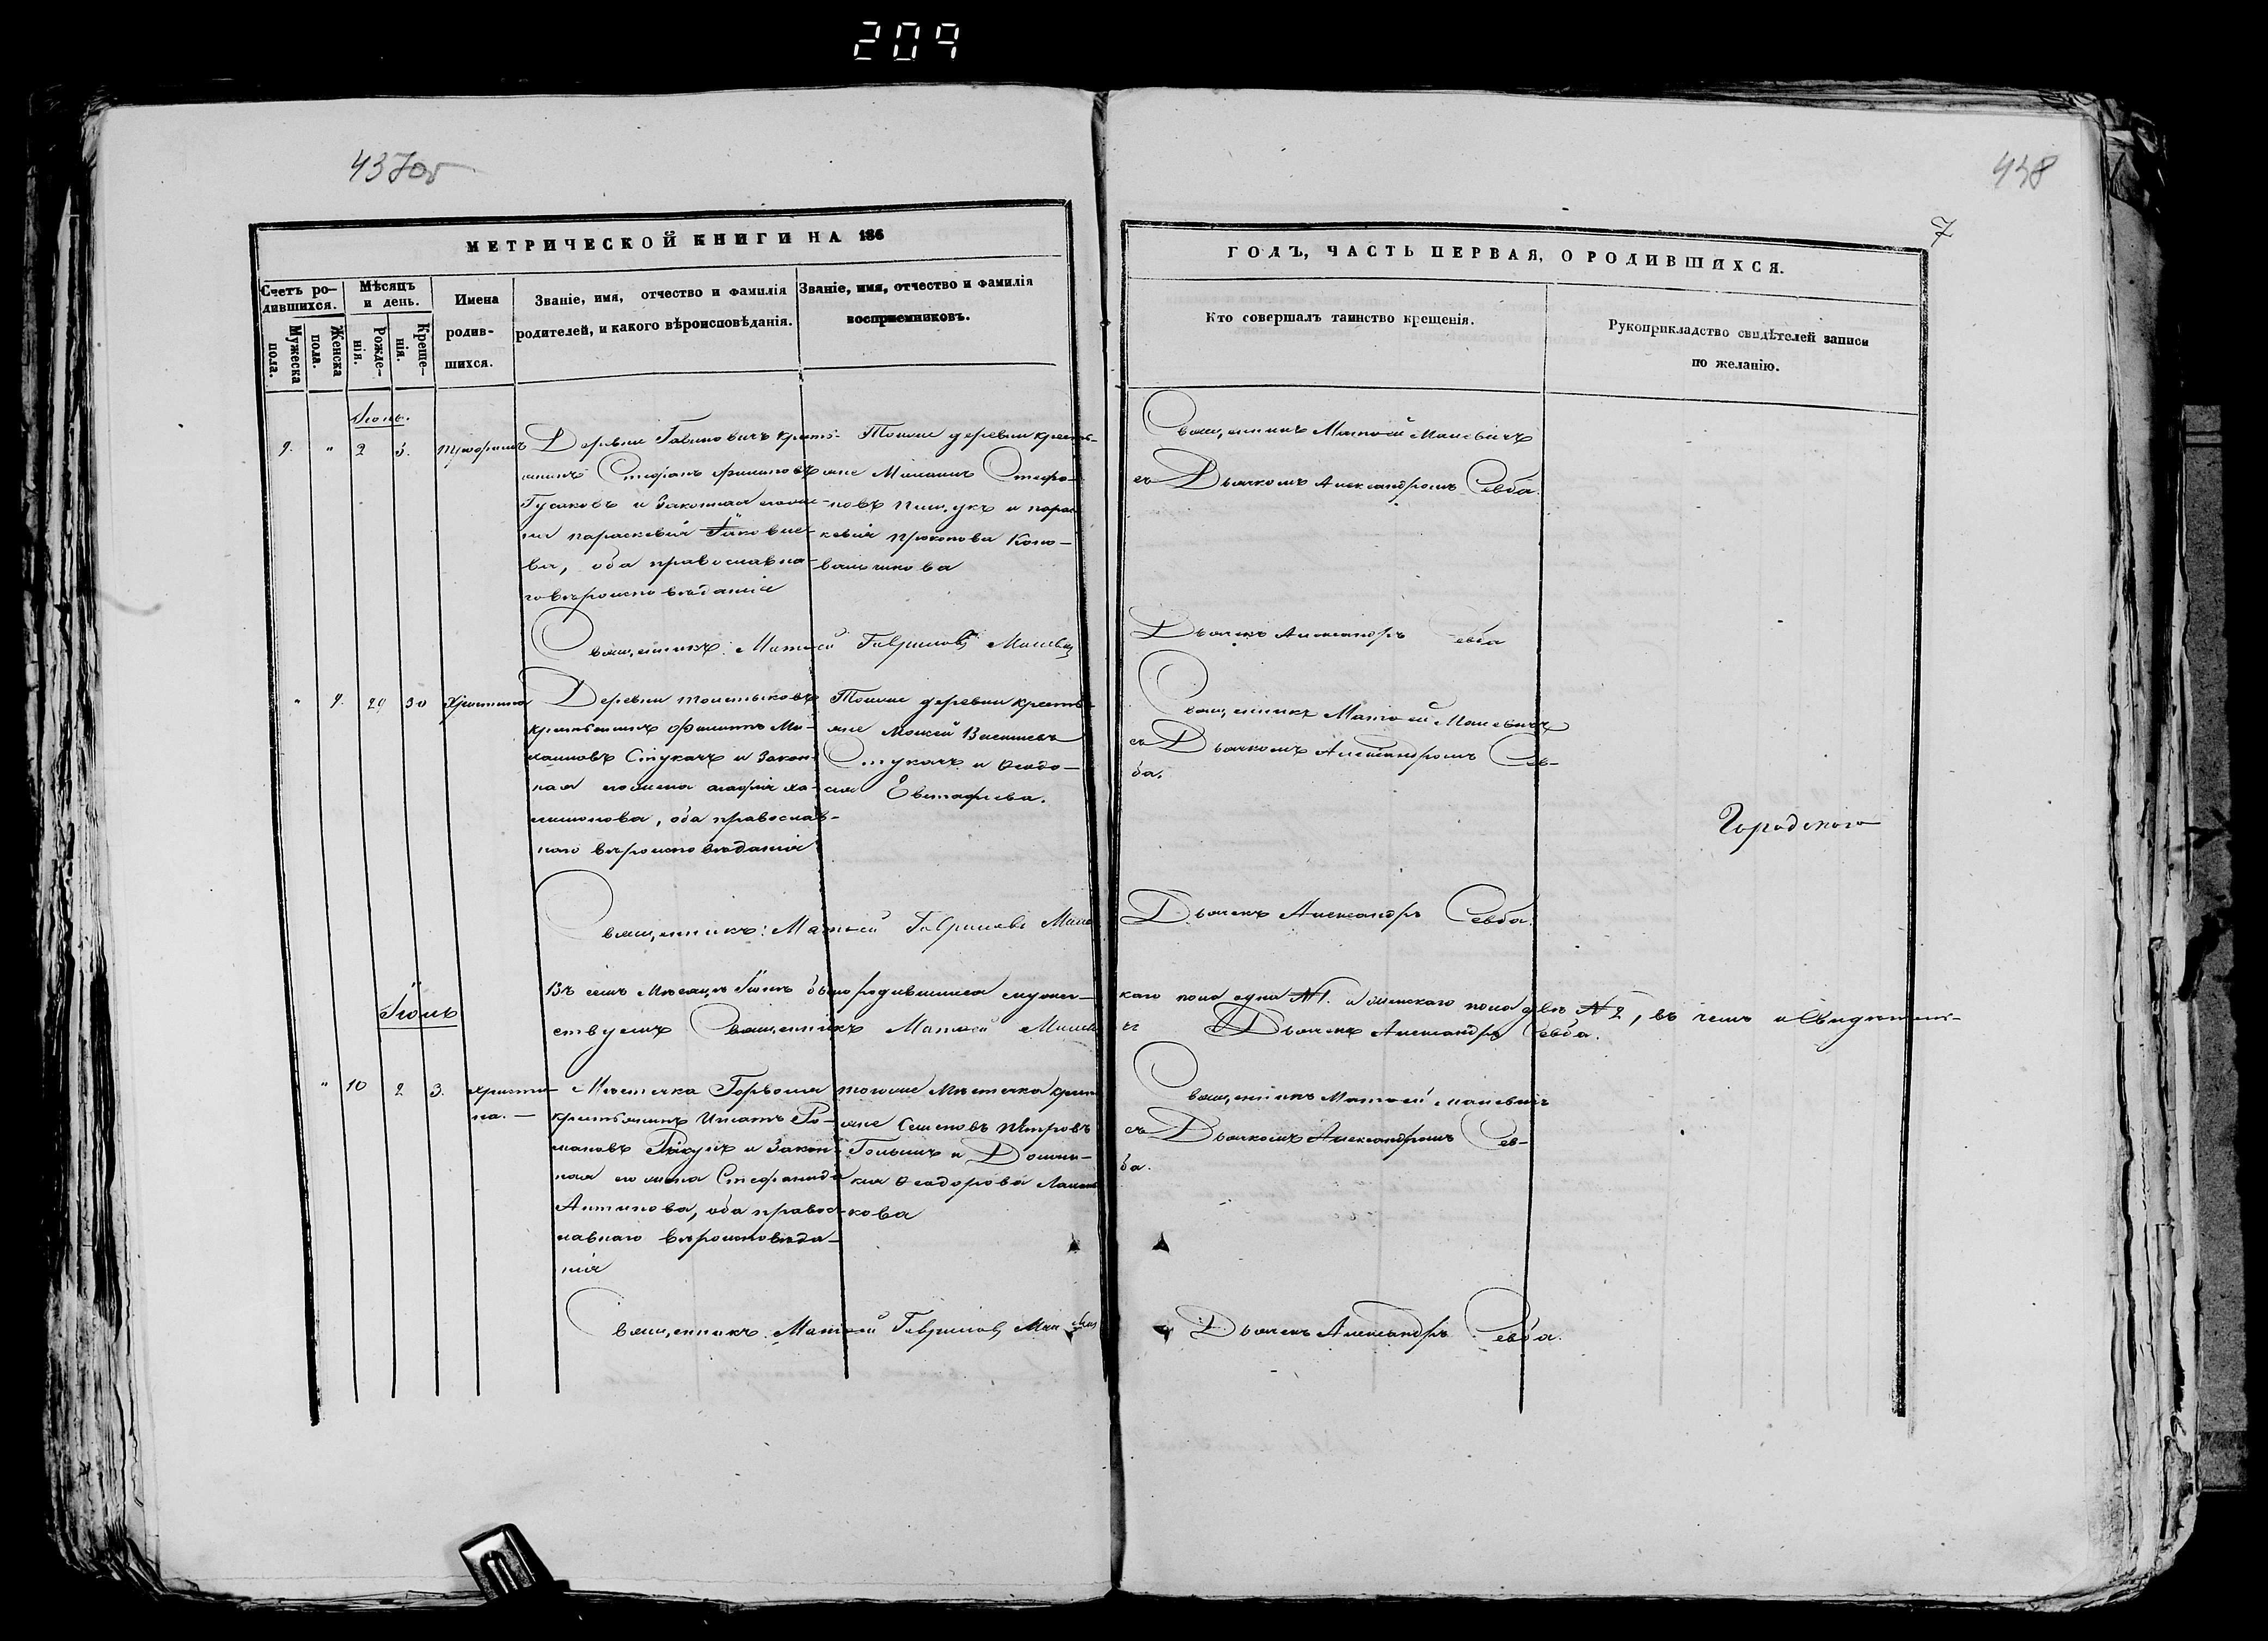 209
437об
438
7
МЕТРИЧЕСКОЙ КНИГИ НА 186
ГОДЪ, ЧАСТЬ ПЕРВАЯ, О РОДИВШИХСЯ.
Счетъ ро-
дившихся.
Мужеска
пола.
Женска
пола.
Мѣсяцъ
и день.
Рожде-
нія.
Креще-
нія.
Имена
родив-
шихся.
Званіе, имя, отчество и фамилія
родителей, и какого вѣроисповѣданія.
Званіе, имя, отчество и фамилія
восприемниковъ.
Кто совершалъ таинство крещенія.
Рукоприкладство свидѣтелей записи
по желанію.
9. " 2 3.
Деревни
Стефанъ Филиповъ
Гусаковъ и законная его же-
на Параскевія Яковле-
ва, оба православна-
го вѣроисповѣданія
Тойже деревни кресть-
яне Стефа-
новъ и Парас-
кевія Прокопова Коно-
вальчикова
Священникъ Матѳей Маневичъ
съ Дьячкомъ Александромъ Севба.
Священникъ: Матѳей Гавриловъ
Дьячекъ Александръ Севба
" 9. 29 30 Христина
Деревни
крестьянинъ Филипъ Ми-
хайловъ Стукачъ и закон-
ная его жена Агафія
оба православ-
наго вѣроисповѣданія
Тойже деревни кресть-
яне Моисей
Стукачъ и Ѳеодо-
сія Евстафіева.
Священникъ Матѳей Маневичъ
съ Дьячкомъ Александромъ Сев-
ба.
Городского
Священникъ: Матѳей Гавриловъ
Дьячекъ Александръ Севба.
Въ семъ мѣсяцѣ Іюнѣ было родившихся мужес-
каго пола одна №1. и женскаго пола двѣ №2, въ чемъ и свидѣтель-
ствуемъ Священникъ Матѳей
Дьячекъ Александръ Севба.
Іюль
" 10 2 3. Христи-
на. —
Мѣстечка Горволя
крестьянинъ Игнатъ Ро-
мановъ и закон-
ная его жена Стефанида
Антипова, оба правос-
лавнаго вѣроисповѣда-
нія
тогоже мѣстечка
яне Семеновъ Петровъ
и Домни-
кія Ѳеодорова
кова
Священникъ Матѳей Маневичъ
съ Дьячкомъ Александромъ Сев-
ба.
Священникъ Матѳей Гавриловъ
Дьячекъ Александръ Севба.